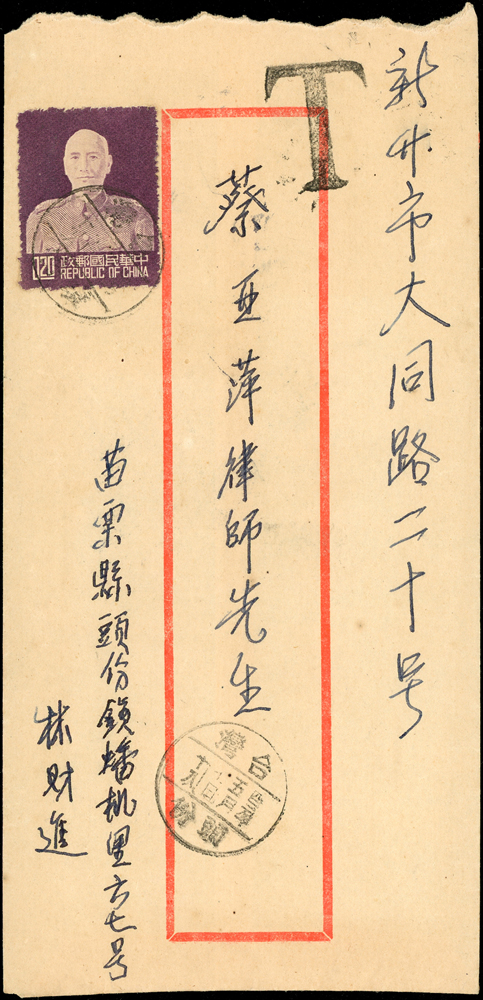 T
新竹市大同路二十号
蔡亜萍律師先生
苗栗縣頭份鎮蟠桃里六七号
林財進
120
中華民國郵政
REPUBLIC OF CHINA
台灣
五月
十八日
頭份